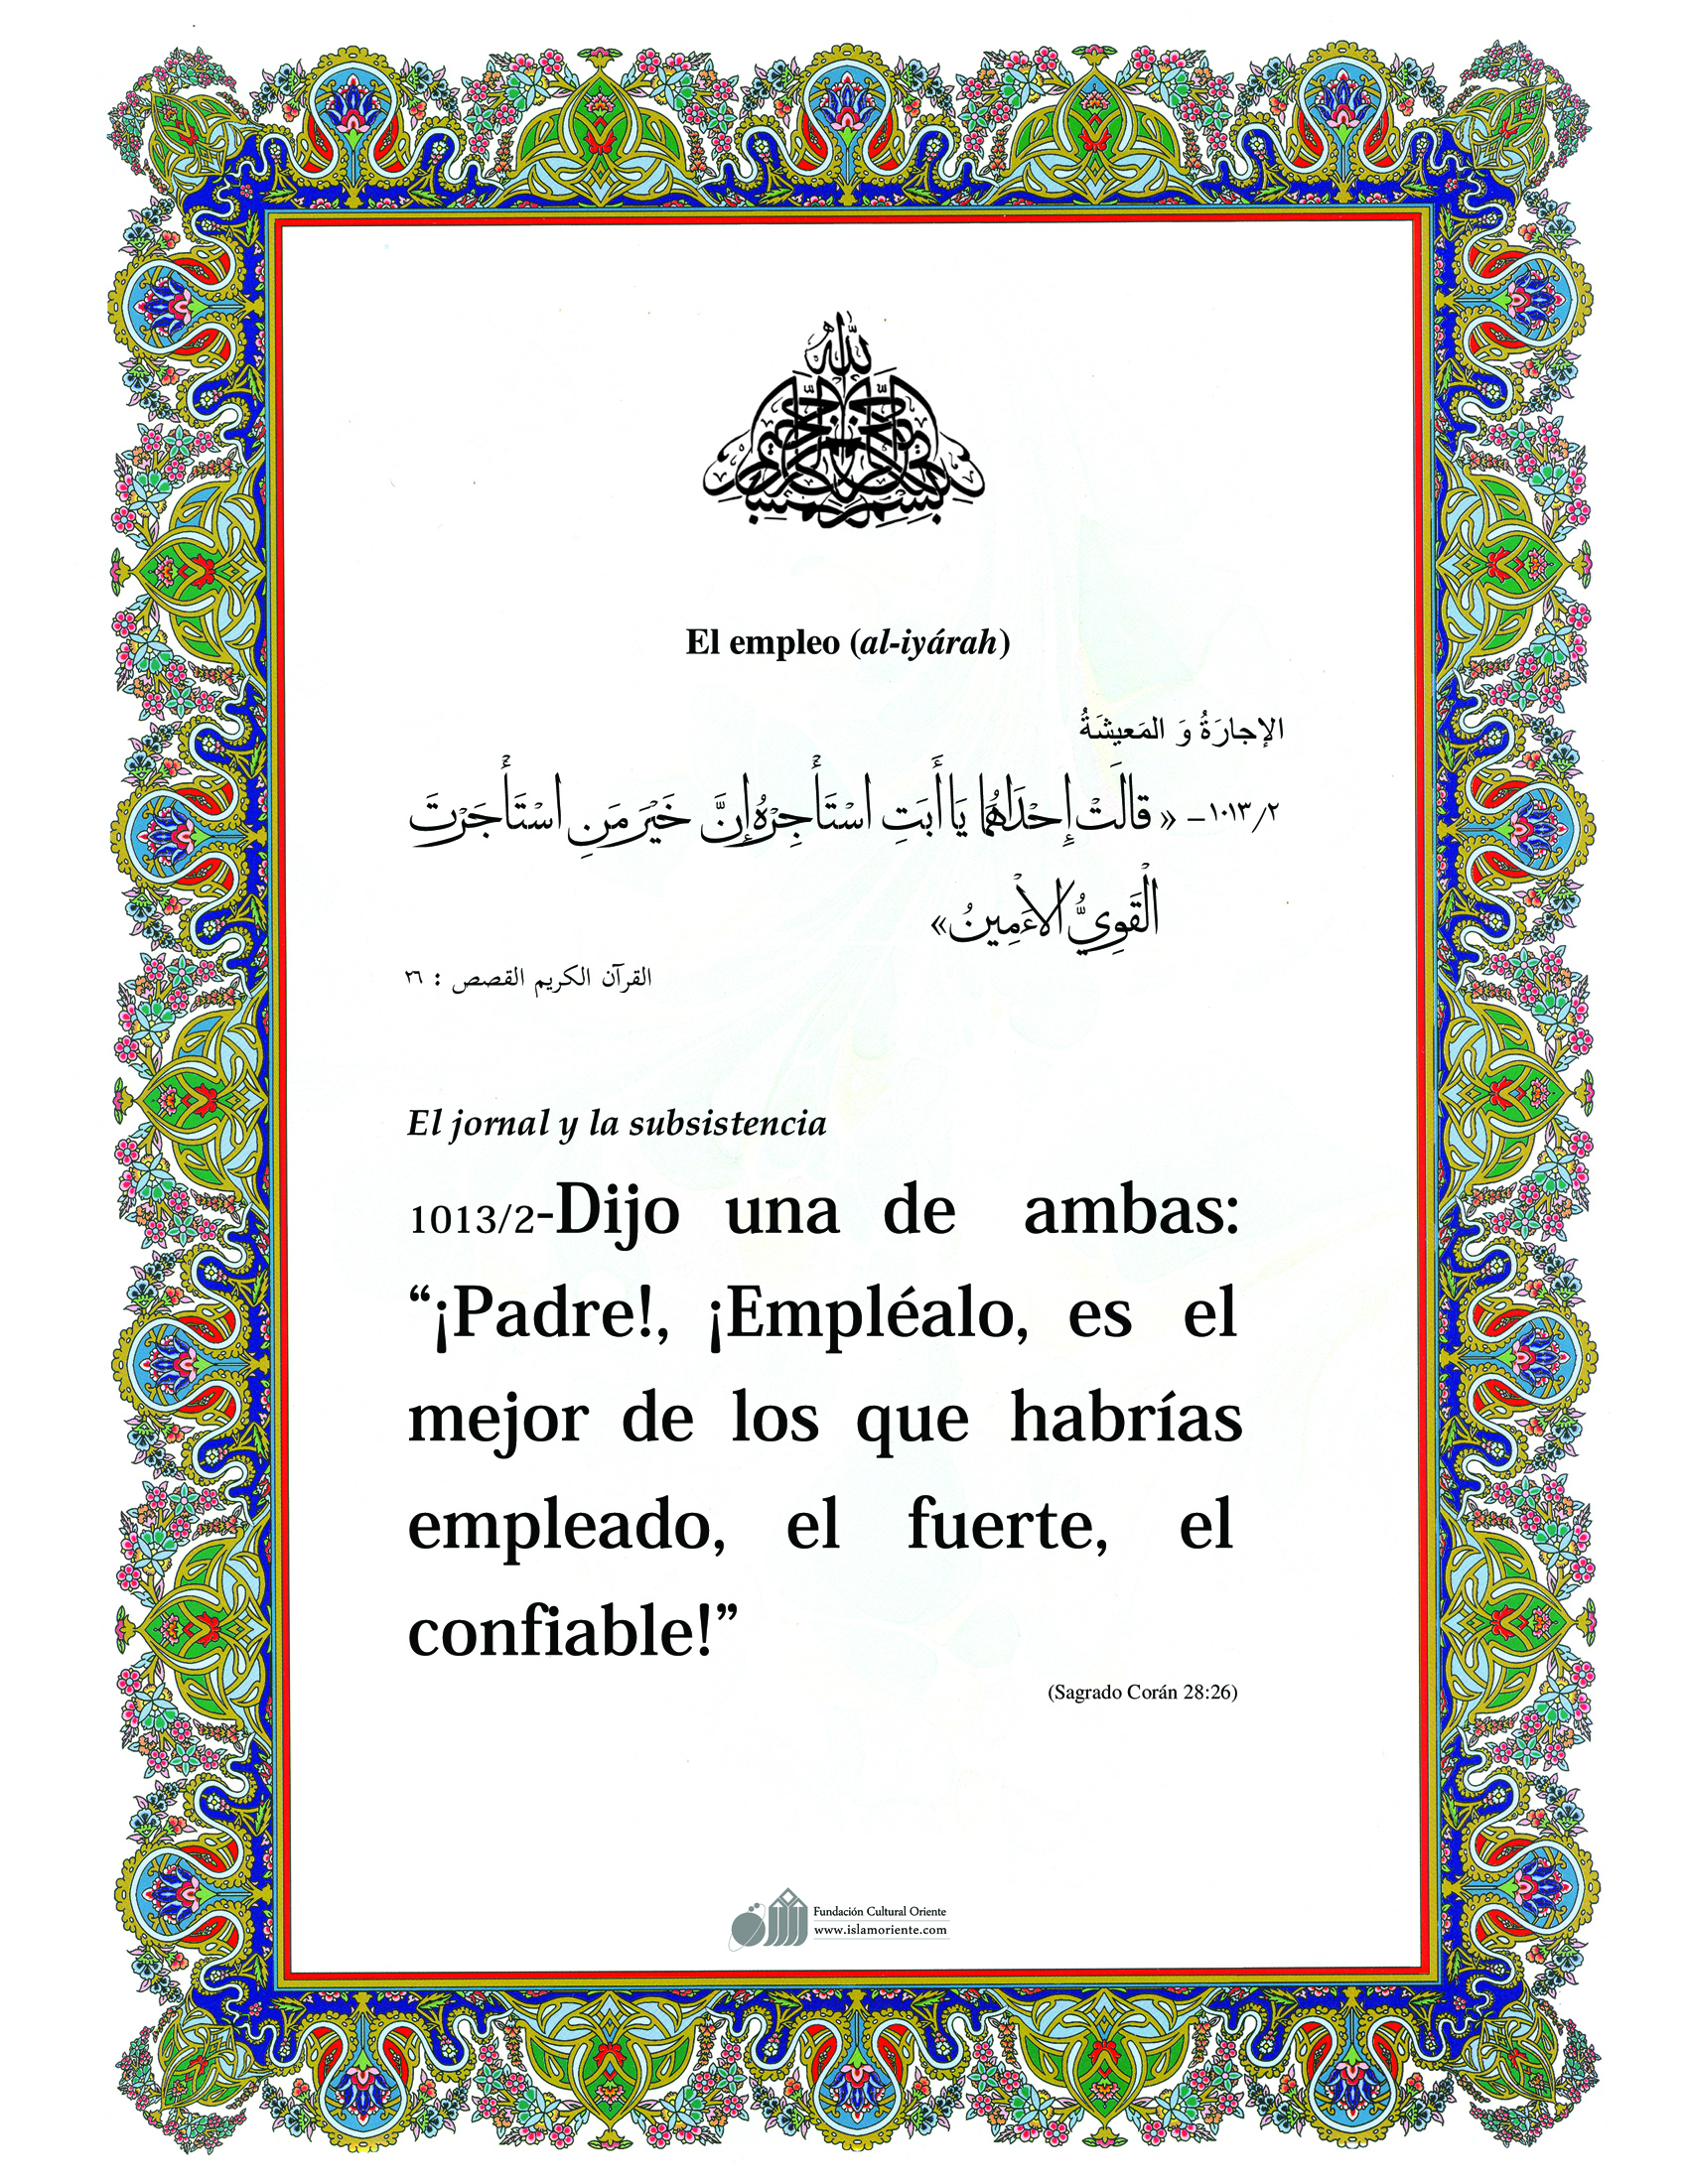 بسم الله الرحمن الرحيم
El empleo (al-iyárah)
الإجارَةُ وَ المَعيشَةُ
١٠١٣/٢– « قالَتْ إِحْدَاهُمَا يَا أَبَتِ اسْتَأْجِرْهُ إِنَّ خَيْرَ مَنِ اسْتَأْجَرْتَ
الْقَوِيُّ الْأَمِينُ»
القرآن الكريم القصص : ٢٦
El jornal y la subsistencia
1013/2-Dijo una de ambas:
“¡Padre!, ¡Empléalo, es el
mejor de los que habrías
empleado, el fuerte, el
confiable!”
(Sagrado Corán 28:26)
Fundación Cultural Oriente
www.islamoriente.com